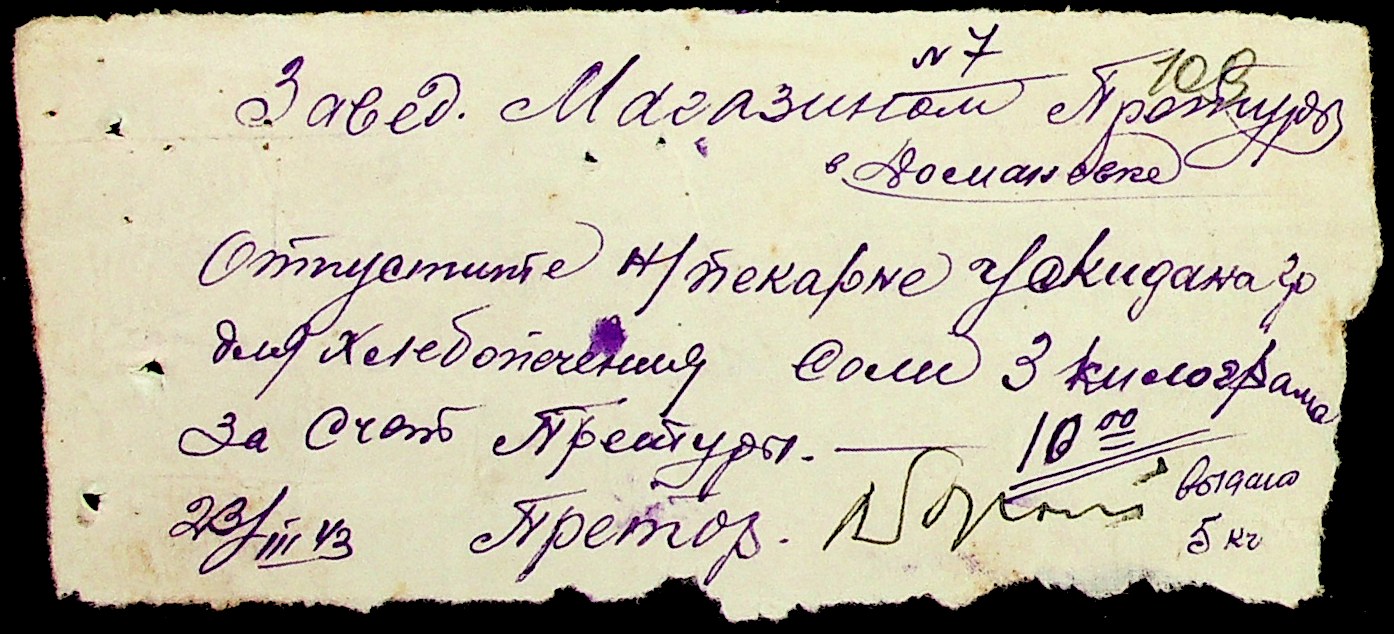 № 7
109
Завед. Магазином Претуры
в Домановке
Отпустите н/пекарне
для хлебопечения Соли 3 килограма
за Счет Претуры. — 10 00
выдано
23/III 43 Претор.
5 кг